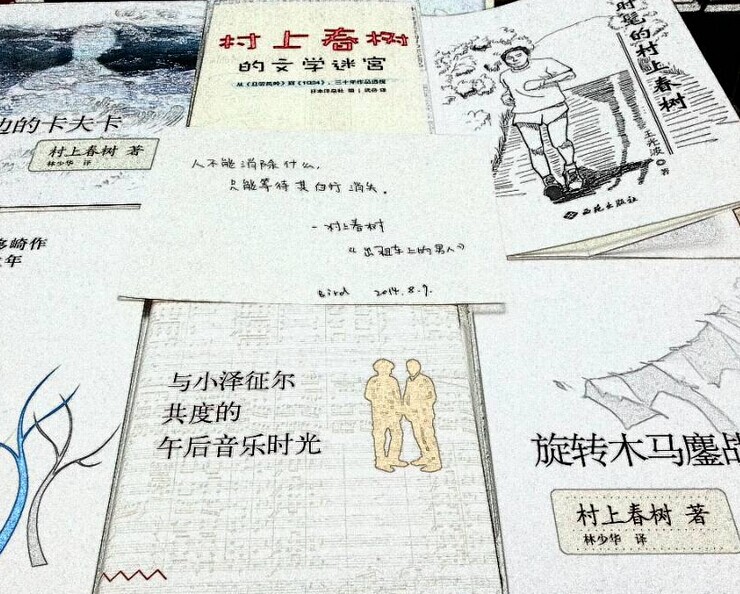 边的卡夫卡
村上春树 著
林少华 译
村上春树
的文学迷宫
从《且听风吟》到《1Q84》，三十年作品透视
时髦的村上春树
王光波 著
西苑出版社
人不能消除什么，
只能等待其自行消失。
-村上春树
《出租车上的男人》
Bird 2014.8.9.
多崎作
年
与小泽征尔
共度的
午后音乐时光
旋转木马鏖战
村上春树 著
林少华 译